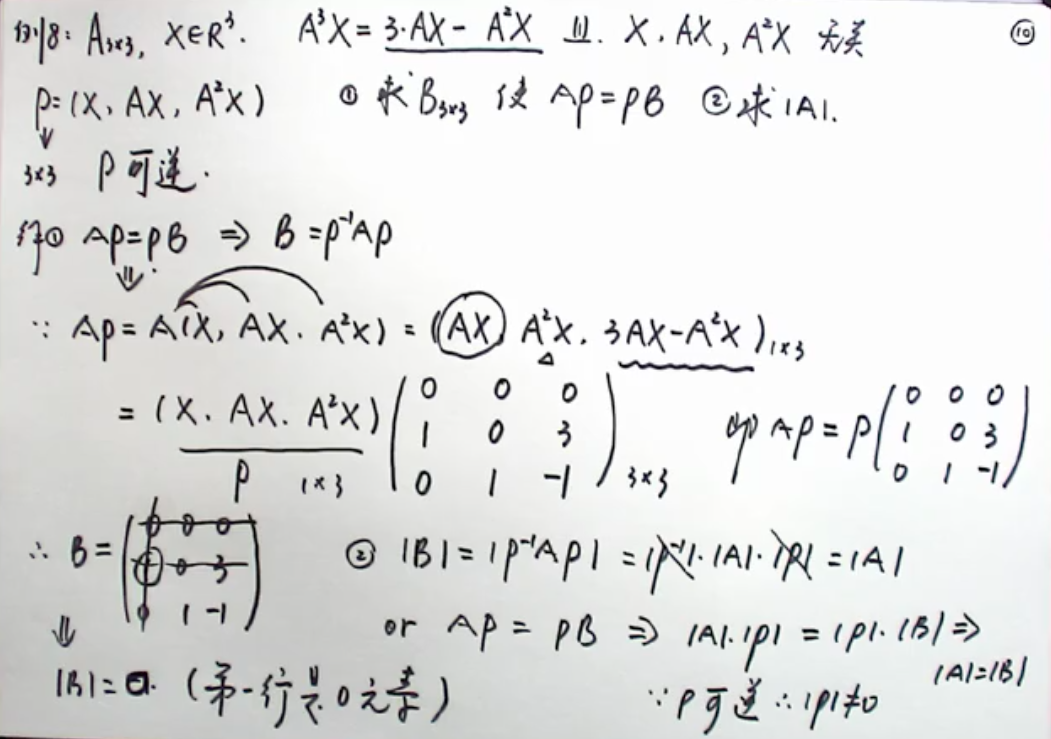 例8: A₃ₓ₃, X∈R³. A³X = 3·AX - A²X 且. X. AX, A²X 无关 ⑩
P=(X, AX, A²X) ① 求B₃ₓ₃ 使 AP=PB ②求|A|.
⇓
3×3 P可逆.
解① AP=PB ⇒ B=P⁻¹AP
⇓
∵ AP=A(X, AX. A²X) = (AX A²X. 3AX-A²X)₁ₓ₃
= (X. AX. A²X) ( 0 0 0 / 1 0 3 / 0 1 -1 ) 3×3 即 AP=P ( 0 0 0 / 1 0 3 / 0 1 -1 )
P 1×3
∴ B= ( 0 0 0 / 1 0 3 / 0 1 -1 ) ② |B|=|P⁻¹AP|=|P⁻¹|·|A|·|P|=|A|
⇓ or AP = PB ⇒ |A|·|P|=|P|·|B| ⇒
|A|=|B|
|B|=0. (第一行是0元素) ∵P可逆∴|P|≠0